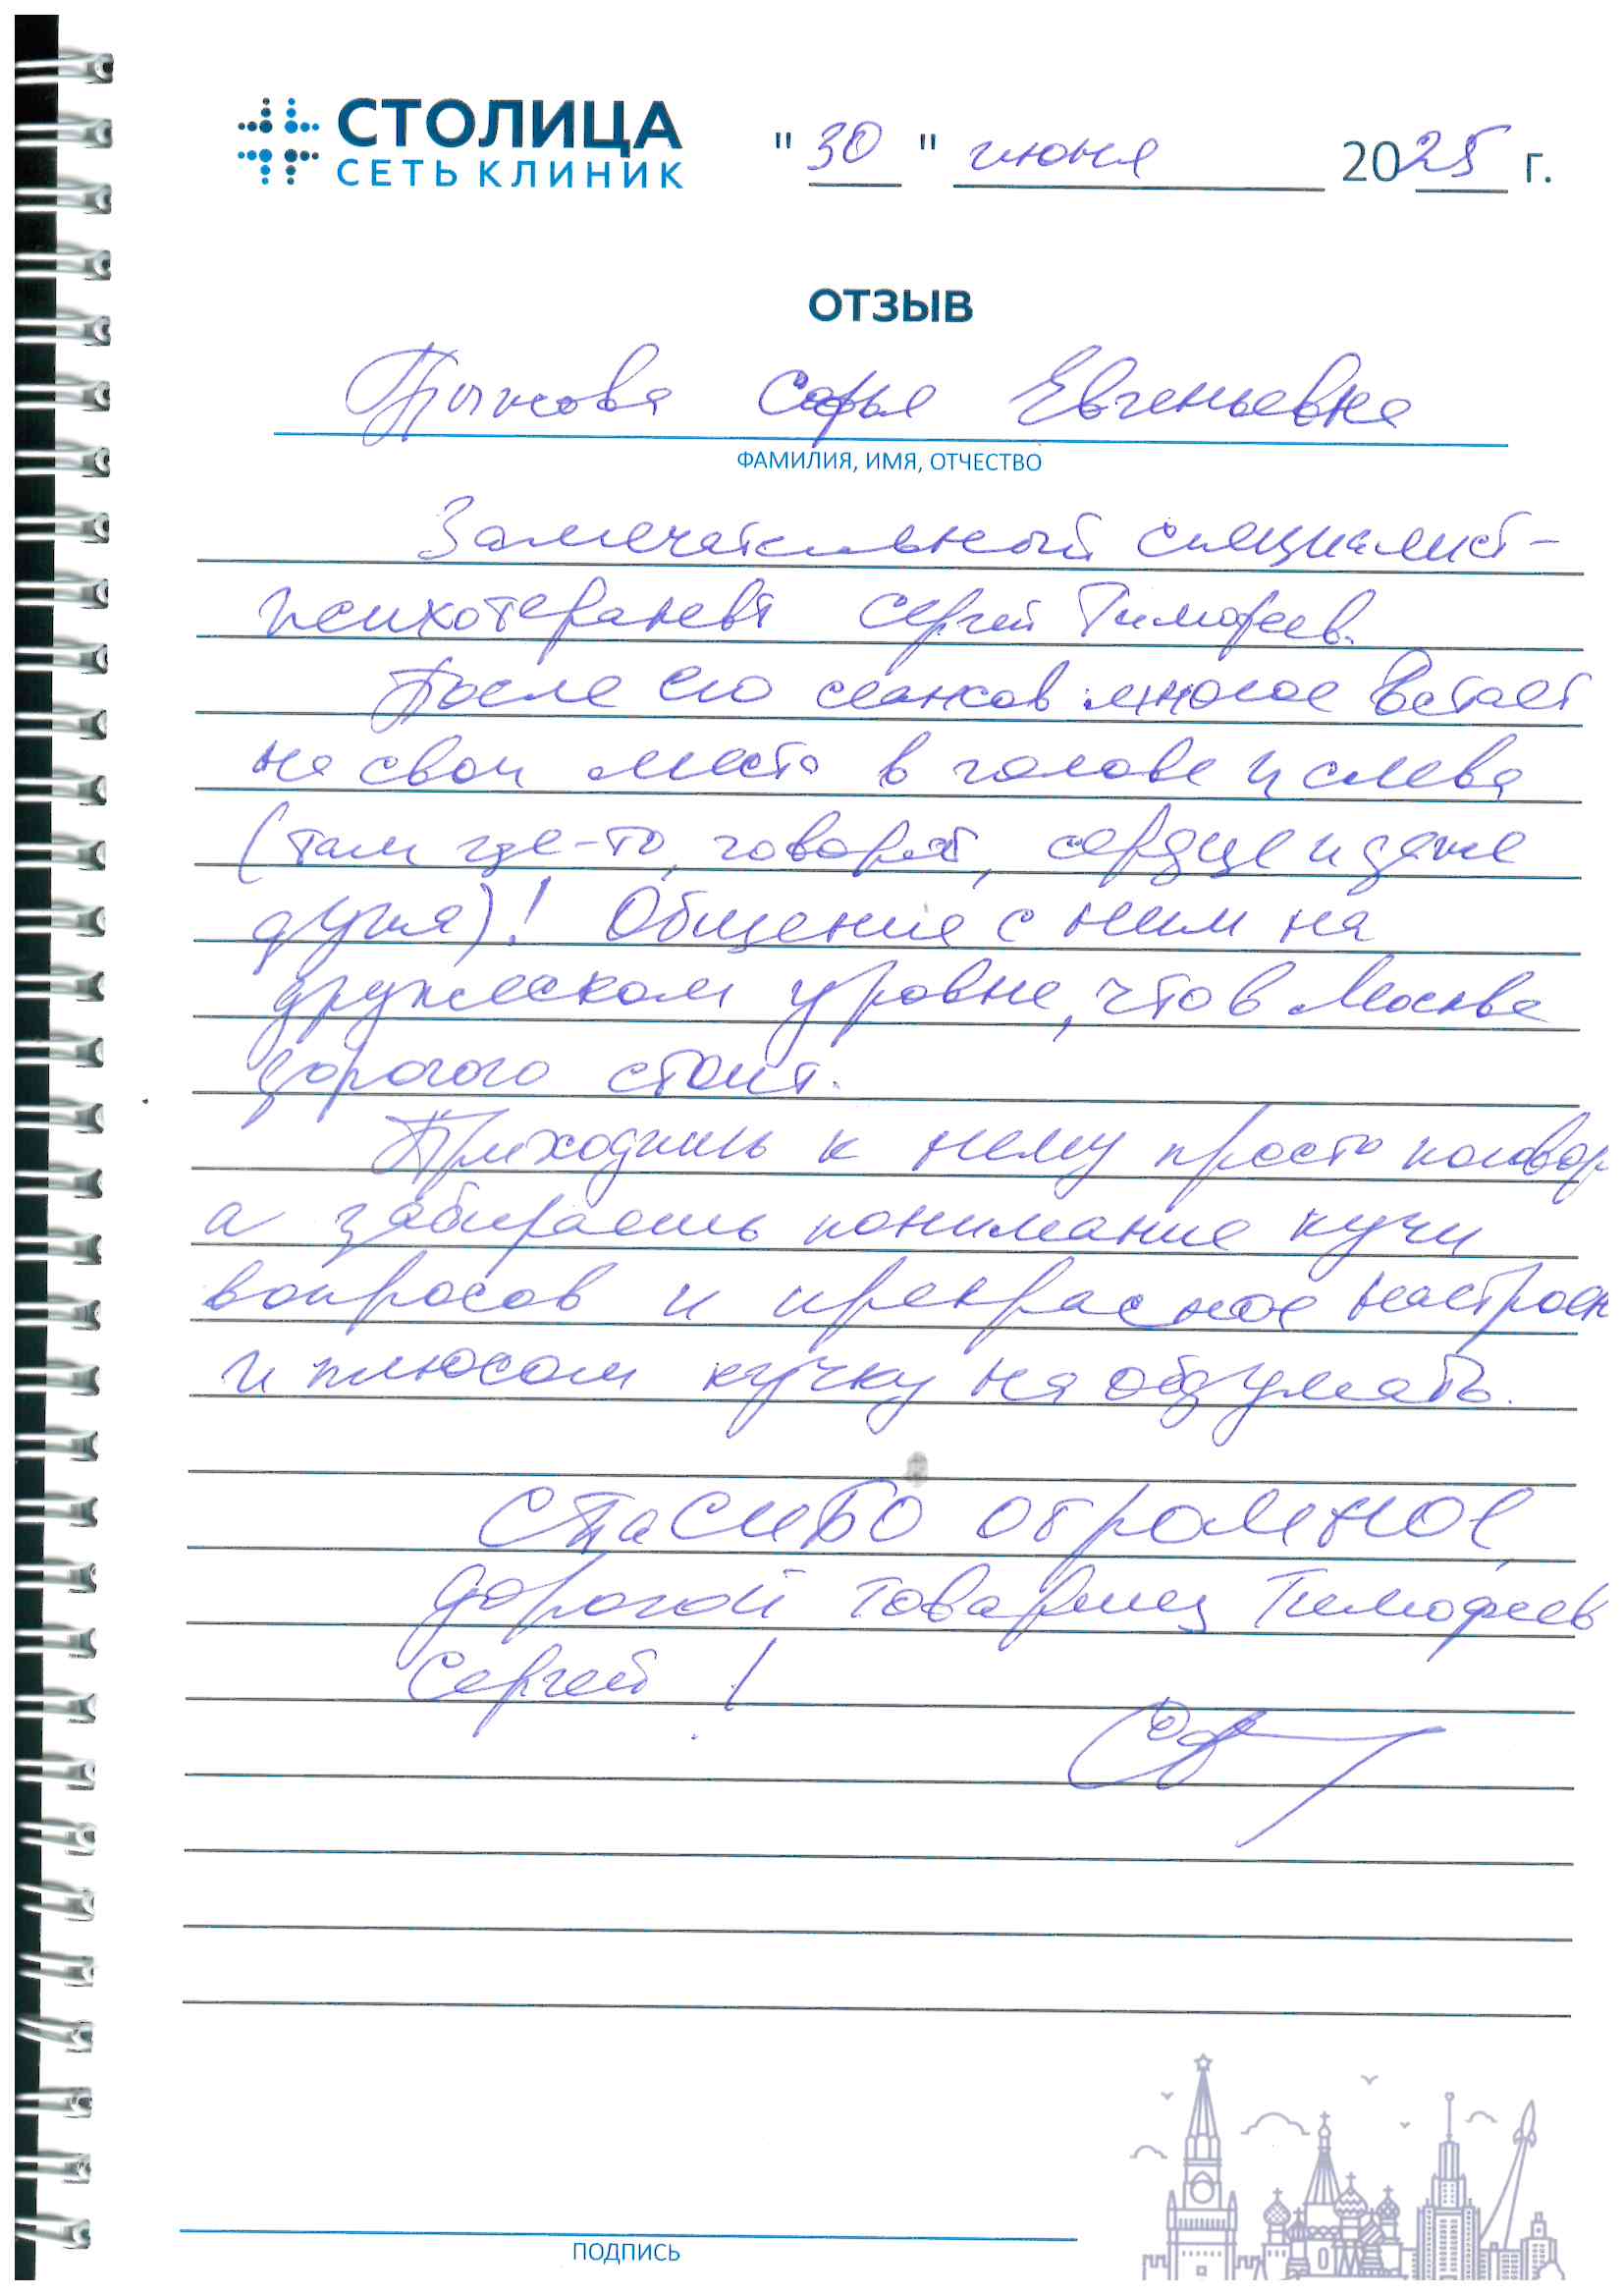 СТОЛИЦА
СЕТЬ КЛИНИК
" 30 " июня 2025 г.
ОТЗЫВ
Софья Евгеньевна
ФАМИЛИЯ, ИМЯ, ОТЧЕСТВО
Замечательный специалист-
психотерапевт Сергей Тимофеев.
После его сеансов многое встает
на свои места в голове и слева
(там где-то, говорят, сердце и даже
душа)! Общение с ним на
дружеском уровне, что в Москве
дорогого стоит.
Приходишь к нему просто поговор
а забираешь понимание кучи
вопросов и прекрасное настроен
и плюсом кучку на обдумать.
Спасибо огромное,
дорогой товарищ Тимофеев
Сергей!
ПОДПИСЬ